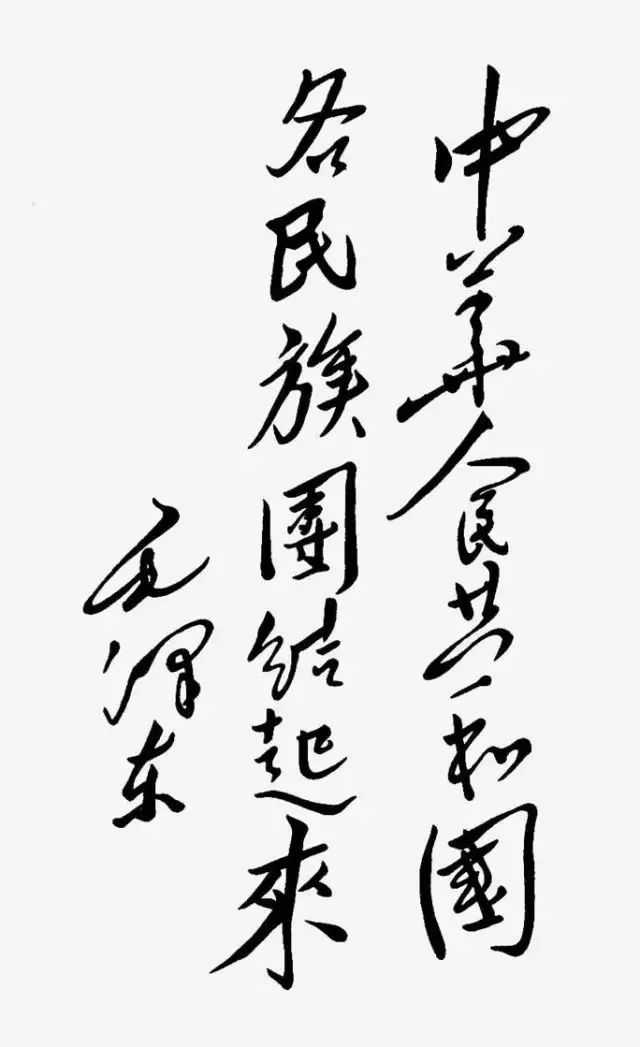 中华人民共和國
各民族團结起來
毛泽东